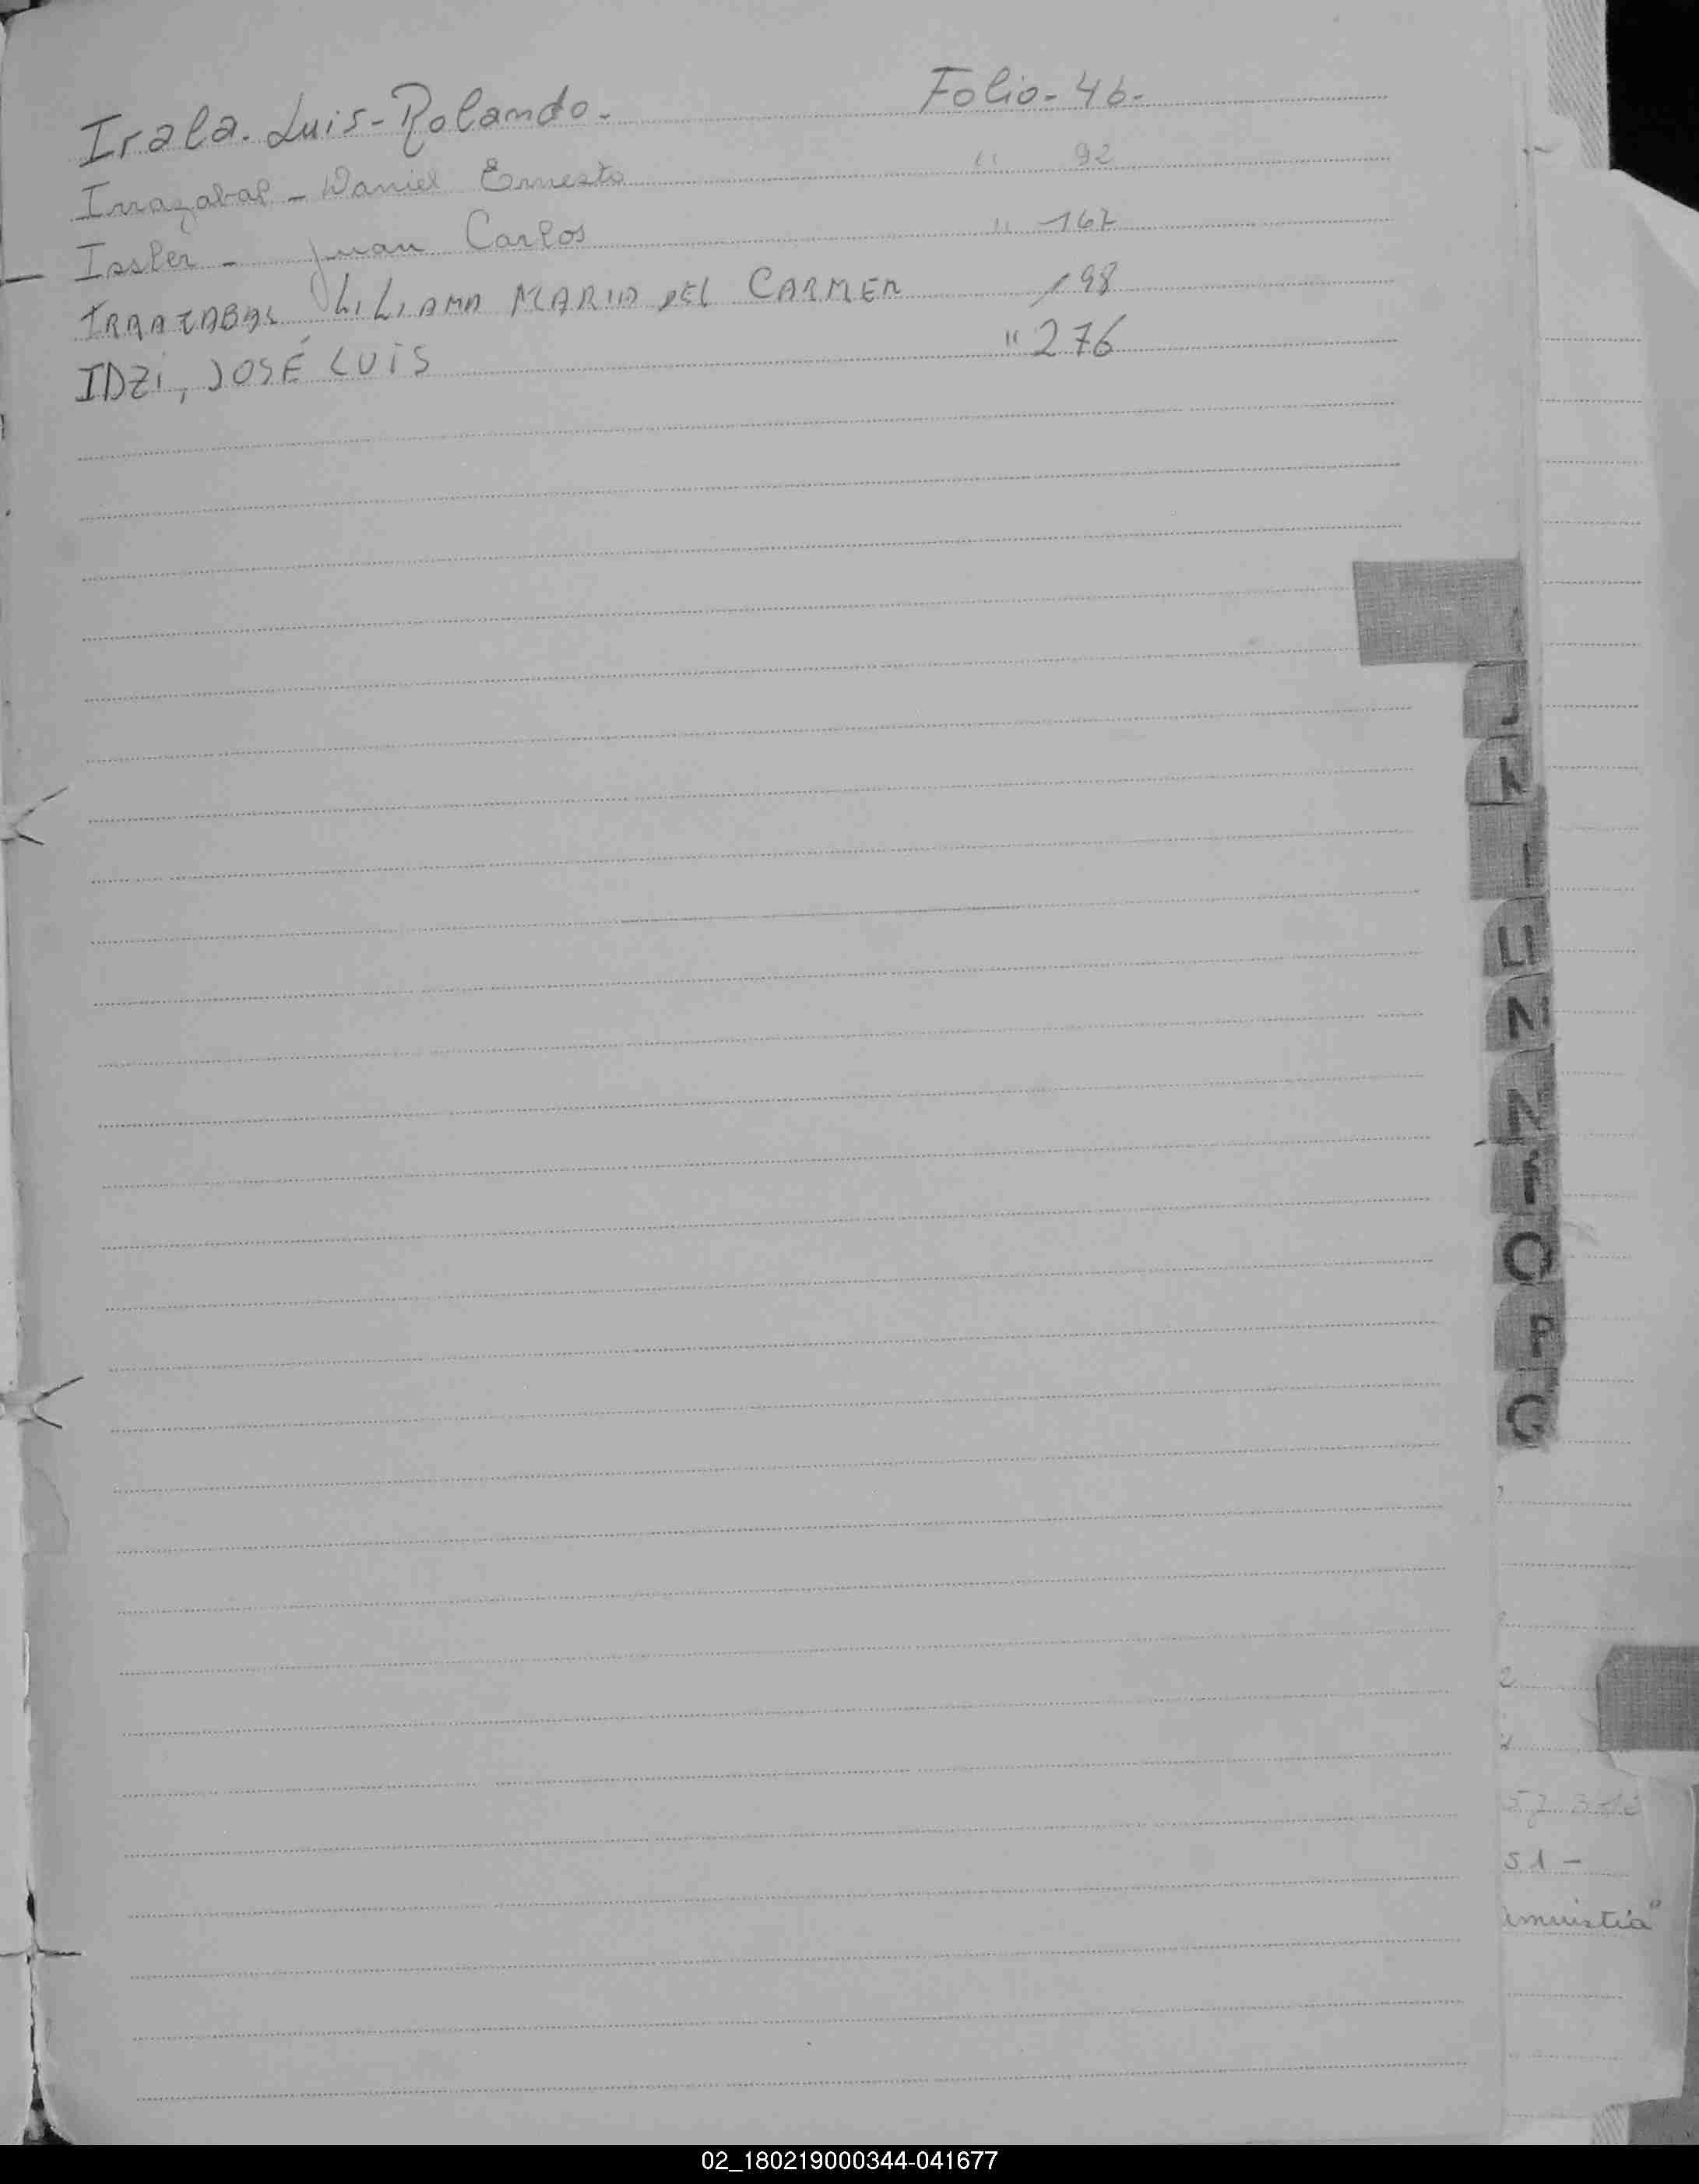 Irala. Luis-Rolando. Folio- 46-
Irrazabal - Daniel Ernesto " 92
Issler - Juan Carlos " 167
IRRAZABAL LILIANA MARIA DEL CARMEN 198
IDZI, JOSÉ LUIS " 276
J
K
L
Ll
N
N
Ñ
O
P
Q
51 -
amnistia"
02_180219000344-041677